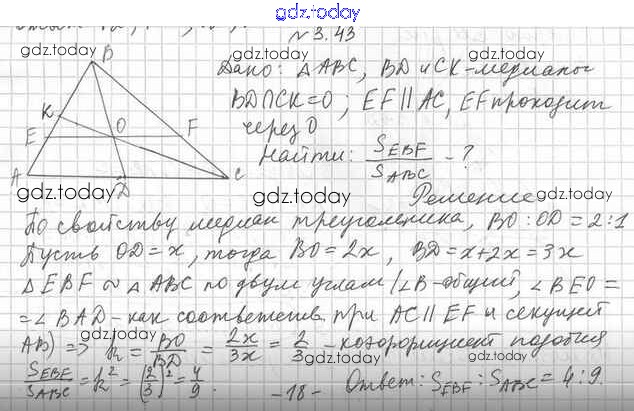 gdz.today
N 3.43
gdz.today gdz.today gdz.today
B
Дано: △ABC, BD и CK-медианы
K
BD∩CK=O; EF∥AC, EF проходит
E O F
через O
Найти: S_EBF/S_ABC - ?
A D C
gdz.today gdz.today gdz.today
Решение
По свойству медиан треугольника, BO:OD=2:1
Пусть OD=x, тогда BO=2x, BD=x+2x=3x
△EBF ∾ △ABC по двум углам (∠B-общий, ∠BEO=
=∠BAD-как соответств. при AC∥EF и секущей
AB) => k = BO/BD = 2x/3x = 2/3 - коэффициент подобия
S_EBF/S_ABC = k² = (2/3)² = 4/9. Ответ: S_EBF : S_ABC = 4:9.
-18-
gdz.today gdz.today gdz.today